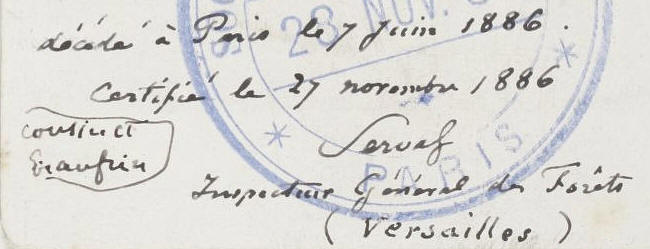 décédé à Paris le 7 Juin 1886.
Certifié le 27 novembre 1886
Serval
Inspecteur Général des Forêts
(Versailles)
28 NOV.
PARIS